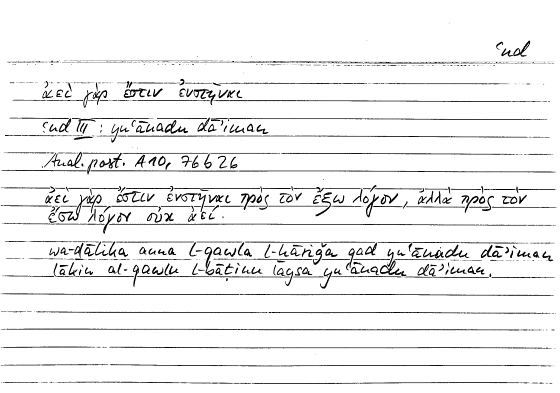 ʿnd
ἀεὶ γὰρ ἔστιν ἐνστῆναι
ʿnd III : yuʿānadu dāʾiman
Anal. post. A 10, 76 b 26
ἀεὶ γὰρ ἔστιν ἐνστῆναι πρὸς τὸν ἔξω λόγον, ἀλλὰ πρὸς τὸν
ἔσω λόγον οὐκ ἀεί.
wa-ḏālika anna l-qawla l-ḫāriǧa qad yuʿānadu dāʾiman
lākin al-qawlu l-bāṭinu laysa yuʿānadu dāʾiman.